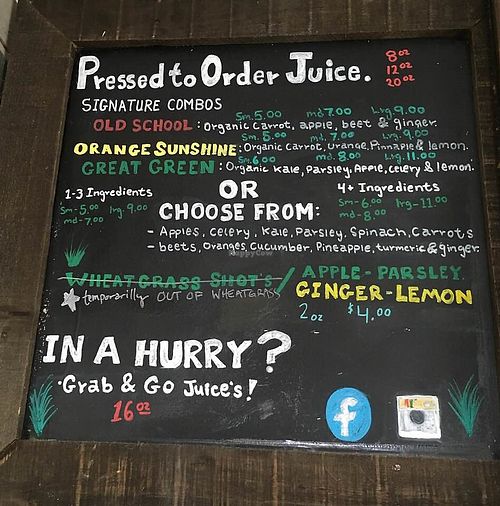 Pressed to Order Juice.
8 oz
12 oz
20 oz
SIGNATURE COMBOS
Sm. 5.00 md 7.00 Lrg. 9.00
OLD SCHOOL : Organic Carrot, apple, beet & ginger.
Sm. 5.00 md. 7.00 Lrg. 9.00
ORANGE SUNSHINE: Organic Carrot, Orange, Pinnaple & lemon.
Sm. 6.00 md. 8.00 Lrg. 11.00
GREAT GREEN : Organic Kale, Parsley, Apple, Celery & lemon.
OR
1-3 Ingredients
Sm- 5.00 lrg- 9.00
md- 7.00
4+ Ingredients
Sm- 6.00 lrg- 11.00
md- 8.00
CHOOSE FROM:
- Apples, Celery, Kale, Parsley, Spinach, Carrots
- beets, Oranges, Cucumber, Pineapple, turmeric & ginger.
HappyCow
WHEATGRASS SHOT'S /
temporarilly OUT OF WHEATGRASS
APPLE - PARSLEY
GINGER - LEMON
2 oz $4.00
IN A HURRY?
· Grab & Go Juice's!
16 oz
f